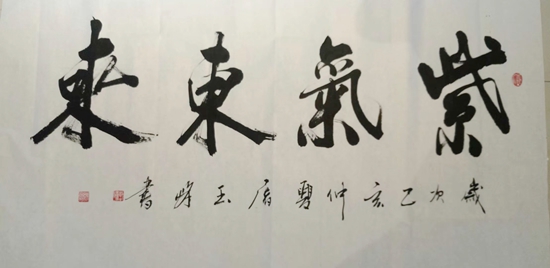 紫氣東來
歲次己亥仲夏玉峰書